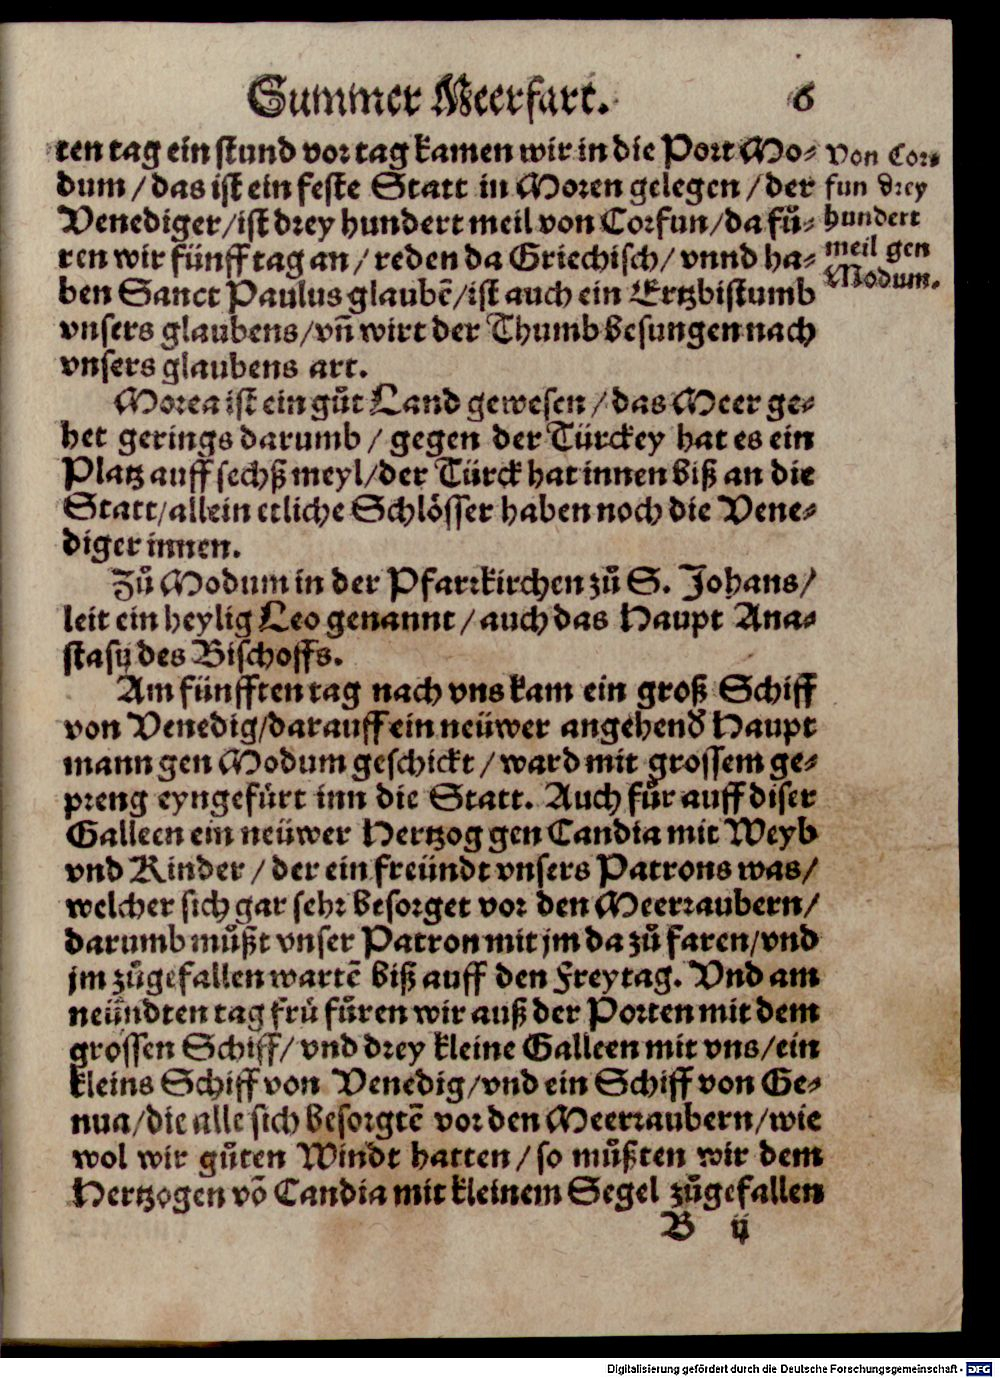 Summer Meerfart. 6
ten tag ein stund vor tag kamen wir in die Port Mo-
dum / das ist ein feste Statt in Moren gelegen / der
Venediger / ist drey hundert meil von Corfun / da fů-
ren wir fünff tag an / reden da Griechisch / vnnd ha-
ben Sanct Paulus glaubē / ist auch ein Ertzbistumb
vnsers glaubens / vn̄ wirt der Thumb besungen nach
vnsers glaubens art.
Von Cor-
fun drey
hundert
meil gen
Modum.
Morea ist ein gůt Land gewesen / das Meer ge-
het gerings darumb / gegen der Türckey hat es ein
Platz auff sechß meyl / der Türck hat innen biß an die
Statt / allein etliche Schlösser haben noch die Vene-
diger innen.
Zů Modum in der Pfarrkirchen zů S. Johans /
leit ein heylig Leo genannt / auch das Haupt Ana-
stasij des Bischoffs.
Am fünfften tag nach vns kam ein groß Schiff
von Venedig / darauff ein neüwer angehend Haupt
mann gen Modum geschickt / ward mit grossem ge-
preng eyngefürt inn die Statt. Auch fůr auff diser
Galleen ein neüwer Hertzog gen Candia mit Weyb
vnd Kinder / der ein freündt vnsers Patrons was /
welcher sich gar sehr besorget vor den Meerraubern /
darumb můßt vnser Patron mit jm da zů faren / vnd
jm zůgefallen wartē biß auff den Freytag. Vnd am
neündten tag frů fůren wir auß der Porten mit dem
grossen Schiff / vnd drey kleine Galleen mit vns / ein
kleins Schiff von Venedig / vnd ein Schiff von Ge-
nua / die alle sich besorgtē vor den Meerraubern / wie
wol wir gůten Windt hatten / so můßten wir dem
Hertzogen vō Candia mit kleinem Segel zůgefallen
B ij
Digitalisierung gefördert durch die Deutsche Forschungsgemeinschaft - DFG